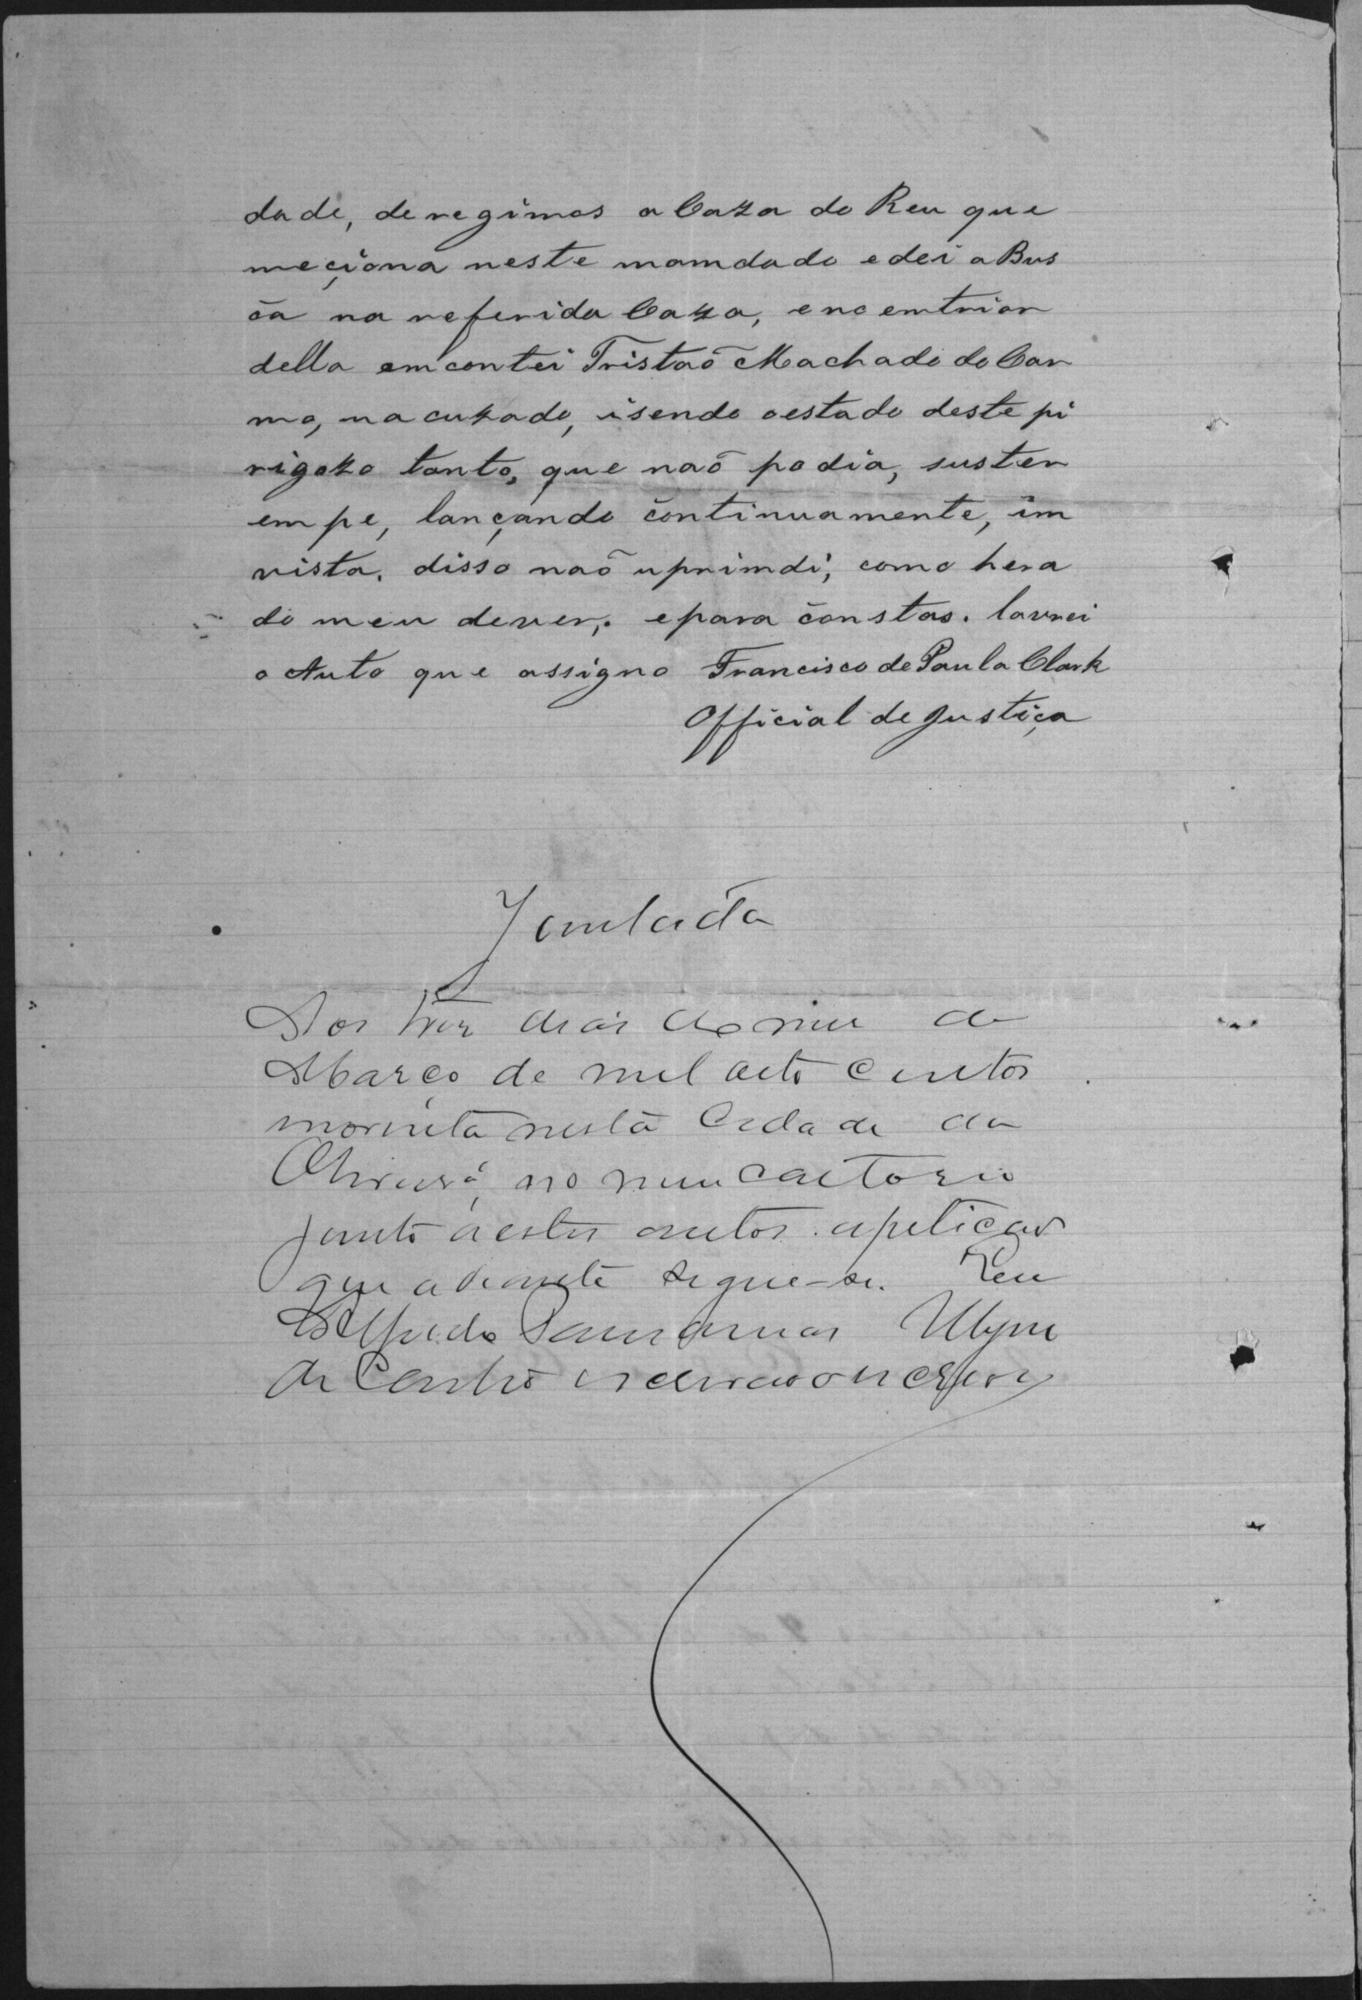 dade, deregimos a Caza do Reu que
meçiona neste mamdado e dei a Bus
ca na referida Caza, eno emtrior
della emcontei Tristaõ Machado do Car
mo, na cuzado, isendo oestado deste pi
rigozo tanto, que naõ podia, suster
em pe, lançando continuamente, im
vista. disso naõ uprimdi, como hera
do meu dever,. epara constas. lavrei
o Auto que assigno Francisco de Paula Clark
Official de Justiça
Juntada
Aos trez dias do mez de
Março de mil oito centos
noventa nesta Cidade da
Oliveira, no meu cartorio
junto a estes autos a peticao
que adeante segue-se. Eu
Alfredo
de Castro escrivao o escrevi